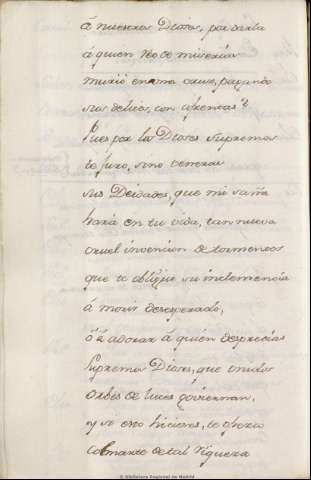 á nuestros Dioses, por darla
á quien reo de miserias
murió en una cruz, pagando
sus delitos, con afrentas?
Pues por los Dioses Supremos
te juro, sino veneras
sus Deidades, que mi saña
hará en tu vida, tan nueva
cruel invencion de tormentos
que te obligue su inclemencia
á morir desesperado,
ó á adorar á quien desprecias
Supremos Dioses, que unidos
orbes de luces goviernan,
y si esto hicieres, te ofrezco
colmarte de tal riqueza
© Biblioteca Regional de Madrid